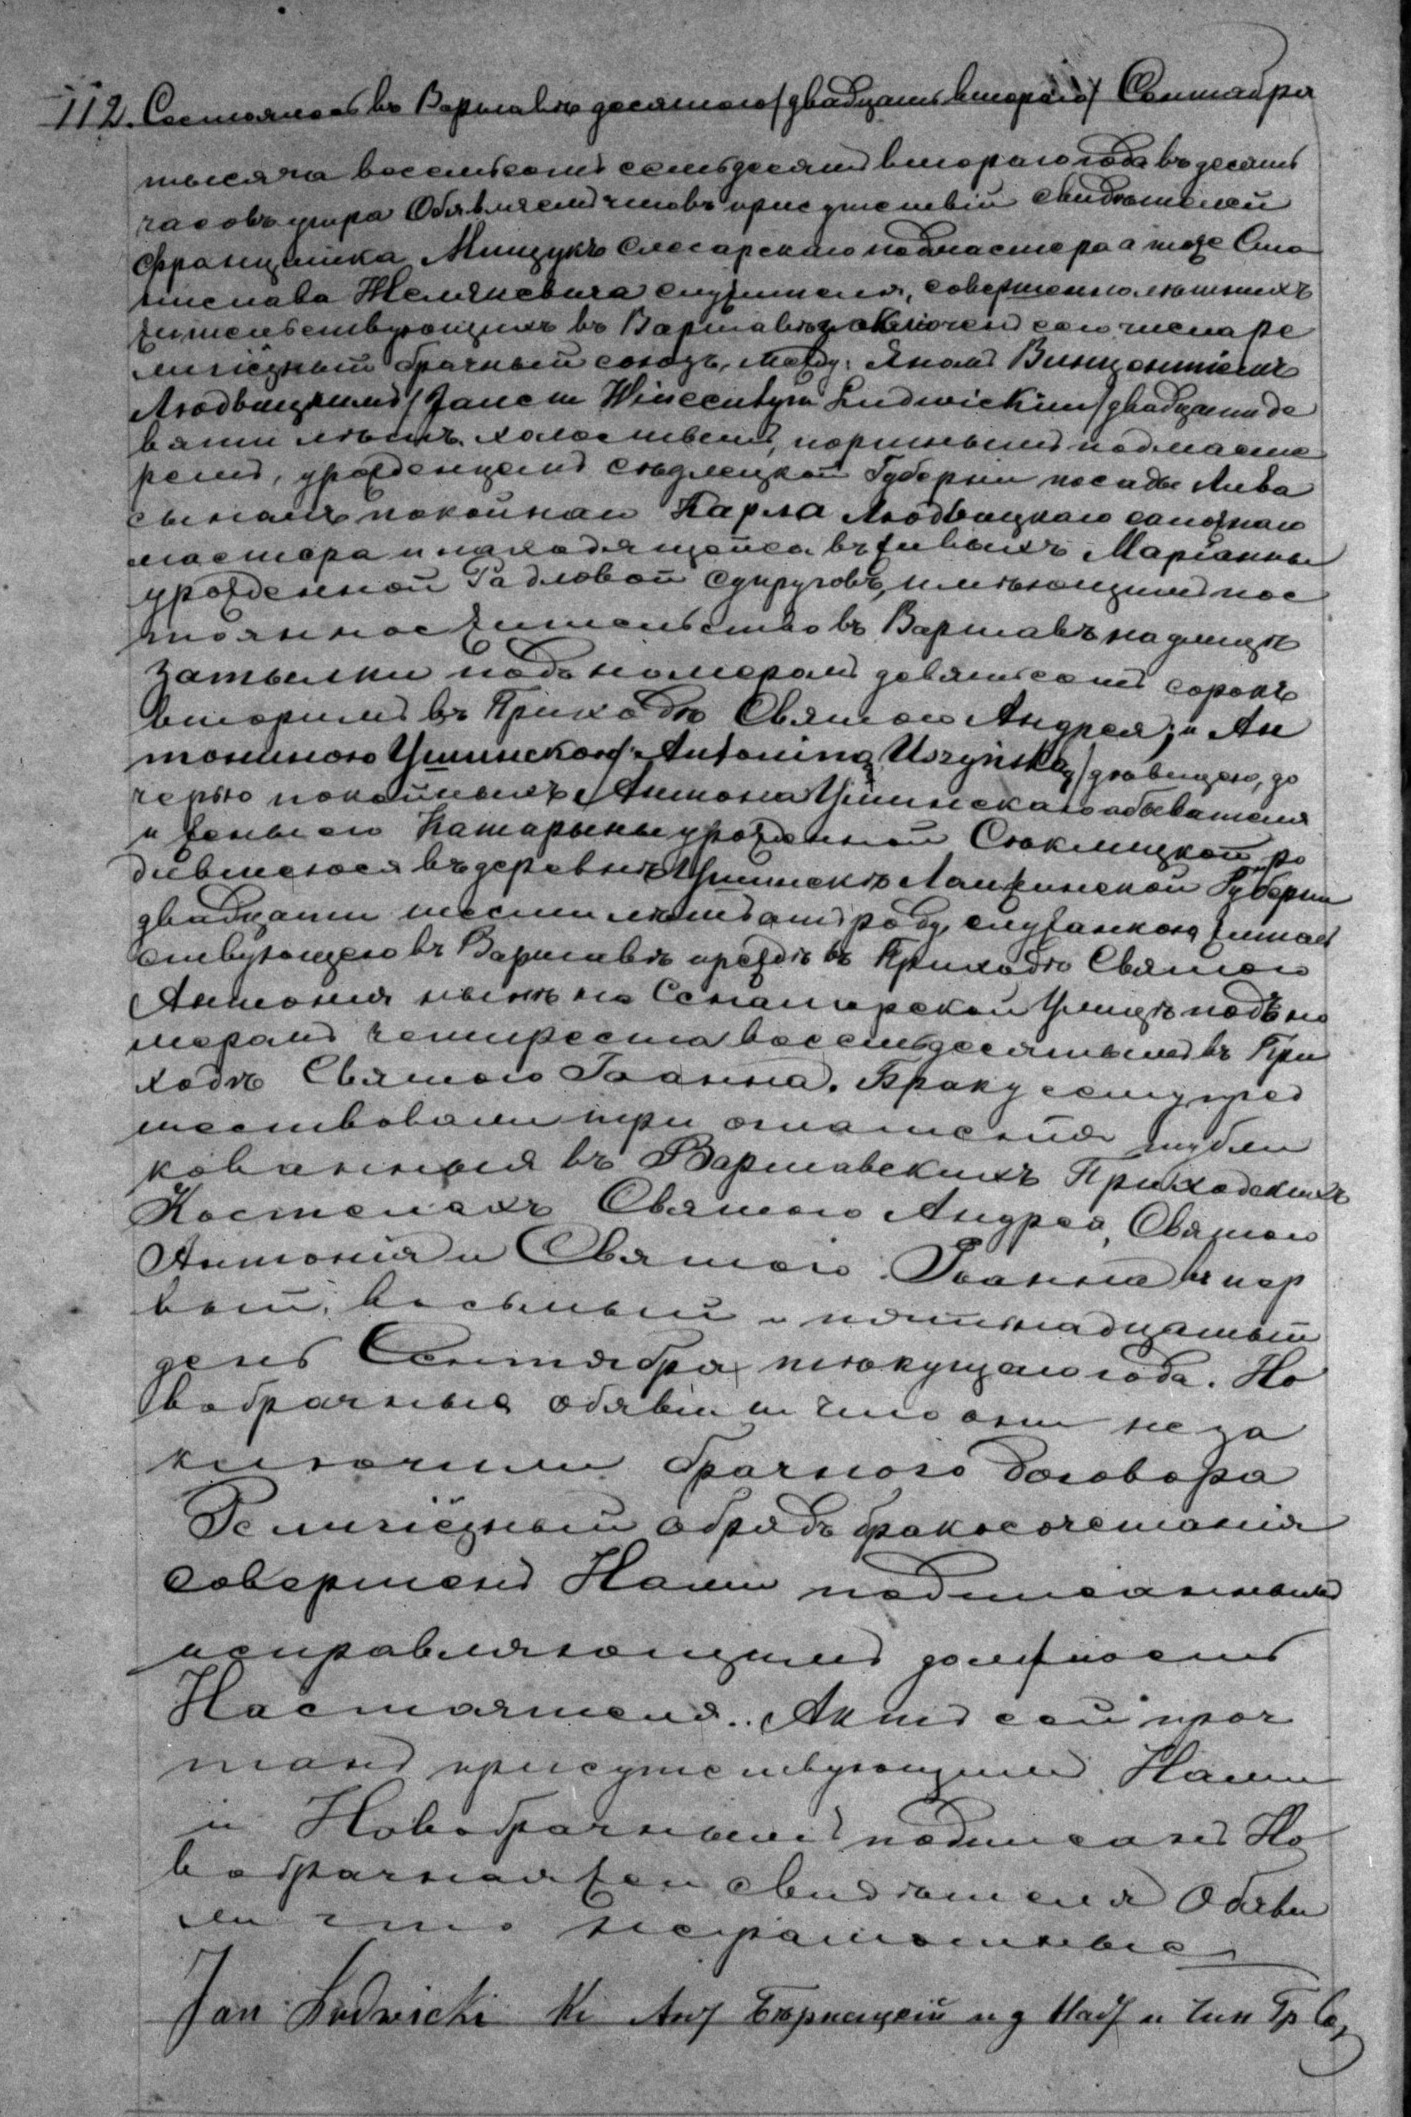 112. Состоялось въ Варшавѣ десятого/двадцать второго/ Сентября
тысяча восемьсотъ семьдесятъ второго года въ десять
часовъ утра Обявляемъ что въ присутствіи свидѣтелей
Францишка Мищукъ слесарскаго подмастера а тоже Ста
нислава Желязкевича служителя, совершеннолѣтнихъ
жительствующихъ въ Варшавѣ заключенъ сего числа ре
лигіозный брачный союзъ, между: Яномъ Винцентіемъ
Людвицкимъ/Janem Wincentym Ludwickim/двадцати де
вяти лѣтъ холостымъ, портнымъ подмасте
ремъ, урожденцемъ сѣдлецкой Губерніи посады Лива
сыномъ покойнаго Карла Людвицкаго сапожнаго
мастера и находящейся въ живыхъ Маріанны
урожденной Гадловой супруговъ, имѣющимъ пос
тоянное жительство въ Варшавѣ на улицѣ
Затылки подъ номеромъ девятьсотъ сорокъ
вторимъ въ Приходѣ Святого Андрея; и Ан
тониною Ушинскою/Antoniną Uszyńską/дѣвицею, до
черью покойныхъ Антона Ушинскаго обывателя
и жены его Катарыны урожденной Соклицкой ро
дившеюся въ деревнѣ Ушинскъ Ломжинской Губерніи
двадцати шести лѣтъ отъ роду, служанкою жител
ствующею въ Варшавѣ прежде въ Приходѣ Святого
Антонія нынѣ на Сенаторской Улицѣ подъ но
меромъ четыреста восемьдесятымъ въ При
ходѣ Святого Іоанна. Браку сему пред
шествовали три оглашенія публи
кованныя въ Варшавскихъ Приходскихъ
Костелахъ Святого Андрея, Святого
Антонія и Святого Іоанна въ пер
вый, восьмый и пятнадцатый
день Сентября текущаго года. Но
вобрачные обявили что они не за
ключили брачного договора
Религіозный обрядъ бракосочетанія
совершенъ Нами подписаннымъ
исправляющимъ должность
Настоятеля. Актъ сей проч
танъ присутствующимъ Нами
и Новобрачнымъ подписанъ Но
вобрачная же и свидѣтеля Обяви
ли что неграмотные
Jan Ludwicki Кс Ант Бѣрнацкій и д Наст и Чин Гр Со